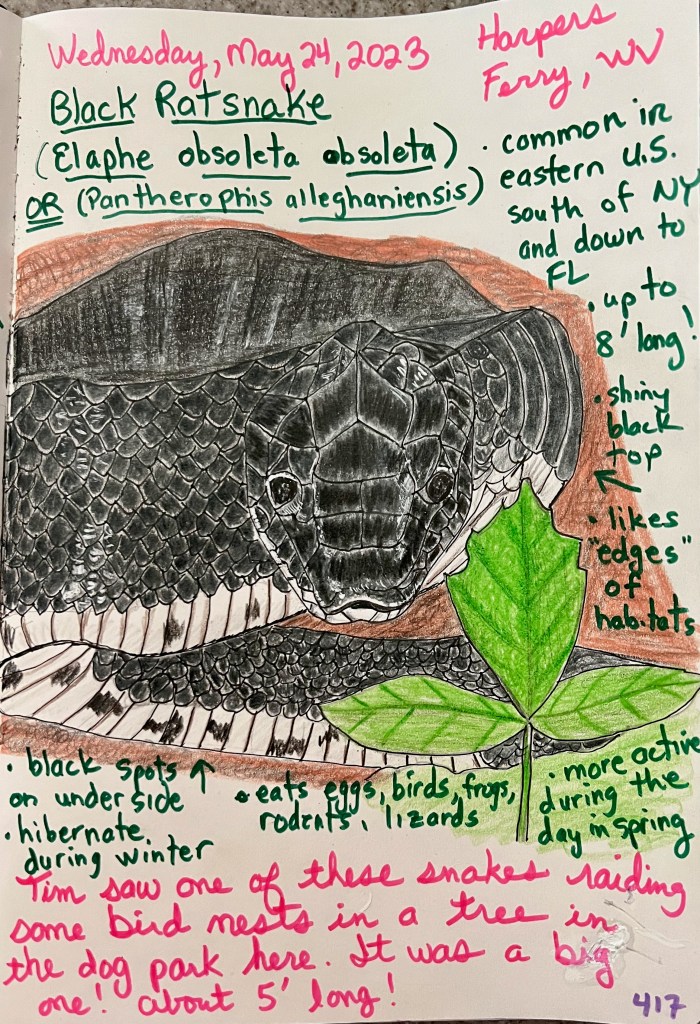 Wednesday, May 24, 2023
Harpers
Ferry, WV
Black Ratsnake
(Elaphe obsoleta obsoleta)
OR (Pantherophis alleghaniensis)
• common in
eastern U.S.
south of NY
and down to
FL
• up to
8' long!
• shiny
black
top
• likes
"edges"
of
habitats
• black spots
on underside
• hibernate
during winter
• eats eggs, birds, frogs,
rodents, lizards
• more active
during the
day in spring
Tim saw one of these snakes raiding
some bird nests in a tree in
the dog park here. It was a big
one! about 5' long!
417